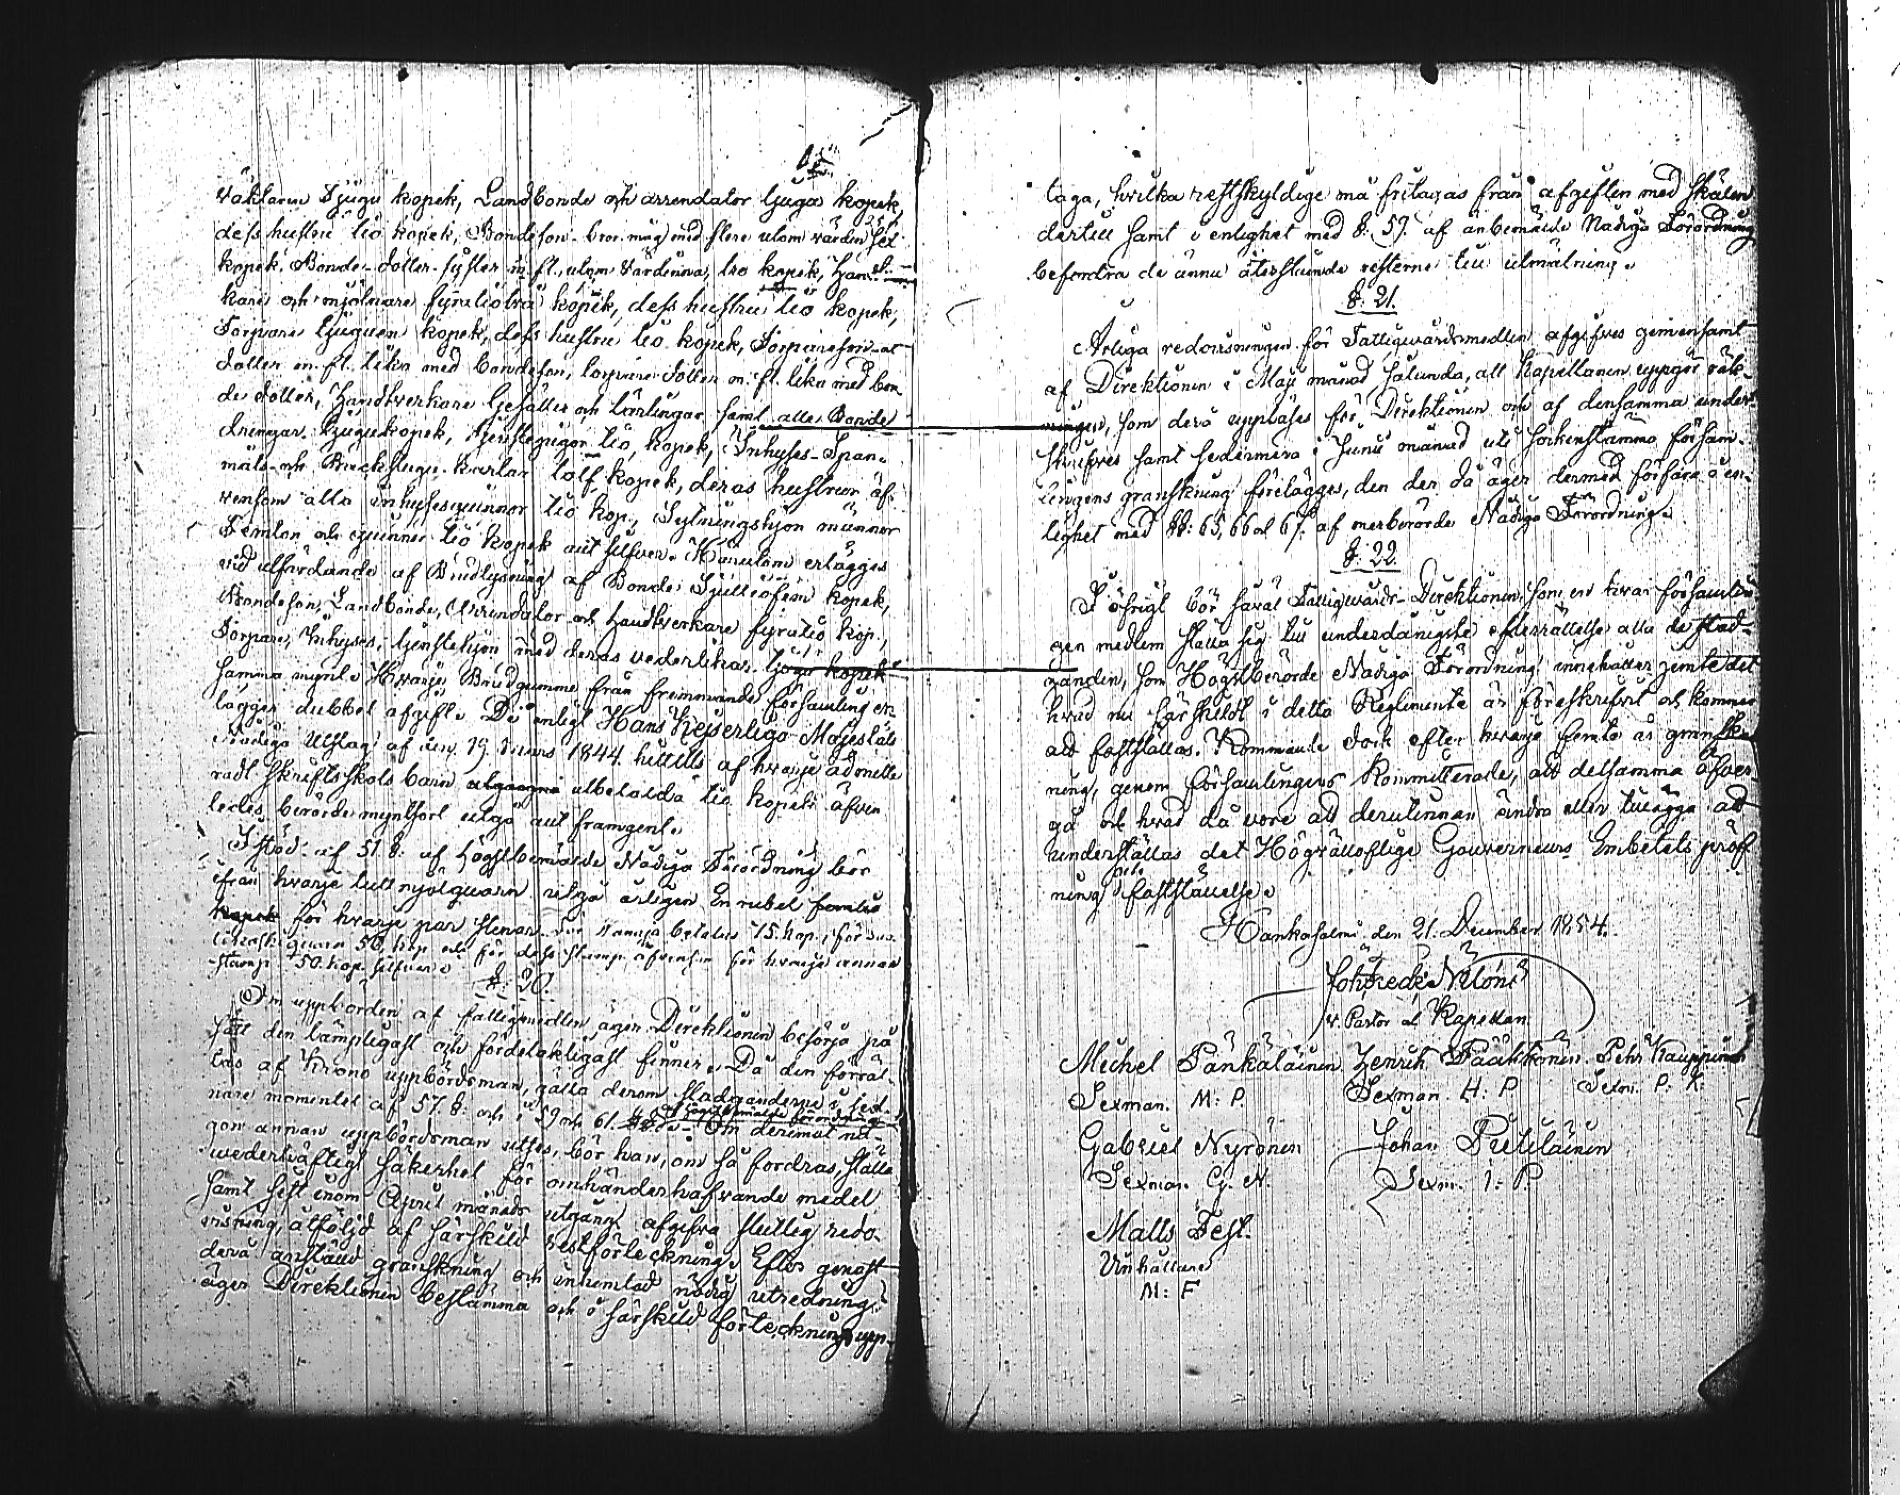 väktaren Tjugu kopek, Landbonde och arrendator tjugu kopek
dess hustru tio kopek, Bondeson-bror-måg med flere utom värden sex
kopek, Bonde-dotter-syster m. fl., utom värdinna, tio kopek,
kare och mjölnare fyratiotvå kopek, dess hustru tio kopek,
Torpare tjuguen kopek, dess hustru tio kopek, Torpareson-
dotter m. fl. lika med bondeson, torpare dotter m. fl. lika med bon-
de dotter, Handtverkare Gesäller och lärlingar samt alla Bonde
drengar tjugu kopek, tjenstepigor tio kopek, Inhyses-Span-
måls- och Backstugu-karlar tolf kopek, deras hustrur äf-
vensom alla inhysesqvinnor tio kop., Sytningshjon männer
Femton och qvinner tio kopek allt silfver. Härutom erlägges
vid utfärdande af Brudlysning af Bonde Sjuttiofem kopek,
Bondeson, Landbonde, Arrendator och handtverkare fyratio kop.,
Torpare, Inhyses, tjenstehjon med deras vederlikar tjugu kopek
samma mynt. Hvarje Brudgumme från fremmande församling er-
lägger dubbel afgift. Då enligt Hans Kejserliga Majestäts
Nådiga Utslag af den 19 mars 1844 hittills af hvarje admitte-
radt skriftskole barn utbetalda tio kopek äfven
ledes berörde myntsort utgå allt framgent.
I stöd af 51 §: af högstbemälde Nådiga Förordning bör
ifrån hvarje tull mjölqvarn utgå årligen En rubel femtio
kopek för hvarje par stenar. För betalas 75. kop., för
qvarn 50. kop. och för dess stamp, äfvensom för hvarje annan
stamp 50. kop. silfver.
§: 20.
Om uppbörden af fattigmedlen äger Direktionen besörja på
sätt den lämpligast och fördelaktigast finner. Då den förrät-
tas af Krono uppbördsman, gälla derom stadganderne i sed-
nare momentet af 57. §: och i 59 och 61. Om deremot nå-
gon annan uppbördsman utses, bör han, om så fordras, ställa
wederhäftigt säkerhet för omhänderhafvande medel
samt sist inom April månads utgång afgifva slutlig redo-
visning, åtföljd af särskild restförteckning. Efter genast
derå anställd granskning och inhemtad nödig utredning,
äger Direktionen bestämma och i särskild förteckning upp-
taga, hvilka restskyldige må fritagas från afgiften med skälen
dertill samt i enlighet med §: 59. af ânbemälde Nådiga Förordning
befordra de ännu återstående resterne till utmätning.
§: 21.
Årliga redovisningen för Fattigvårdsmedlen afgifves gemensamt
af Direktionen i Maji månad sålunda, att Kapellanen uppgör räk-
ningen, som derå uppläses för Direktionen och af densamma under-
skrifves samt sedermera i Junii månad uti sockenstämma församl-
lingens granskning förelägges, den der då äger dermed förfara i en-
lighet med §§: 65, 66 och 67: af merberörde Nådiga Förordning.
§: 22.
I öfrigt bör såväl Fattigvårds-Direktionen, som en hvar församlin-
gen medlem ställa sig till underdånigste efterrättelse alla de stad-
ganden, som Högstberörde Nådiga Förordning innehåller jemte det
hvad nu särskildt i detta Reglemente är föreskrifvit och kommer
att fastställas. Kommande dock efter hvarje femte år gransk-
ning, genom församlingens Kommitterade, att detsamma öfver-
gå och hvad då vore att derutinnan ändra eller tillägga att
underställas det Högvällofliga Gouverneurs Embetets pröf-
ning och fastställelse.
Hankasalmi den 21. December 1854.
Joh. Fredr. Nilóni
v. Pastor och Kapellan
Michel Pänkäläinen Henrik Päätikönen. Pehr Kauppinen
Sexman. M: P. Sexman. H: P Sexm. P: K:
Gabriel Nyrönen Johan Pietiläinen
Sexman. G. N. Sexm. I: P.
Matts Fest.
M: F